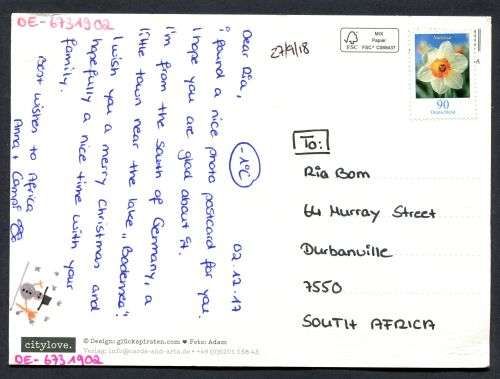 DE-6731902
-1°C
02.12.17
Dear Ria,
i found a nice photo postcard for you.
I hope you are glad about it.
I'm from the south of Germany, a
little town near the lake „Bodensee".
I wish you a merry Christmas and
hopefully a nice time with your
family.
Best wishes to Africa
Anna +
27/9/18
MIX
Papier
FSC
FSC® C089437
Narzisse
90
Deutschland
To:
Ria Bom
64 Murray Street
Durbanville
7550
SOUTH AFRICA
citylove.
© Design: glückspiraten.com ♥ Foto: Adam
Verlag: info@cards-and-arts.de •
DE-6731902